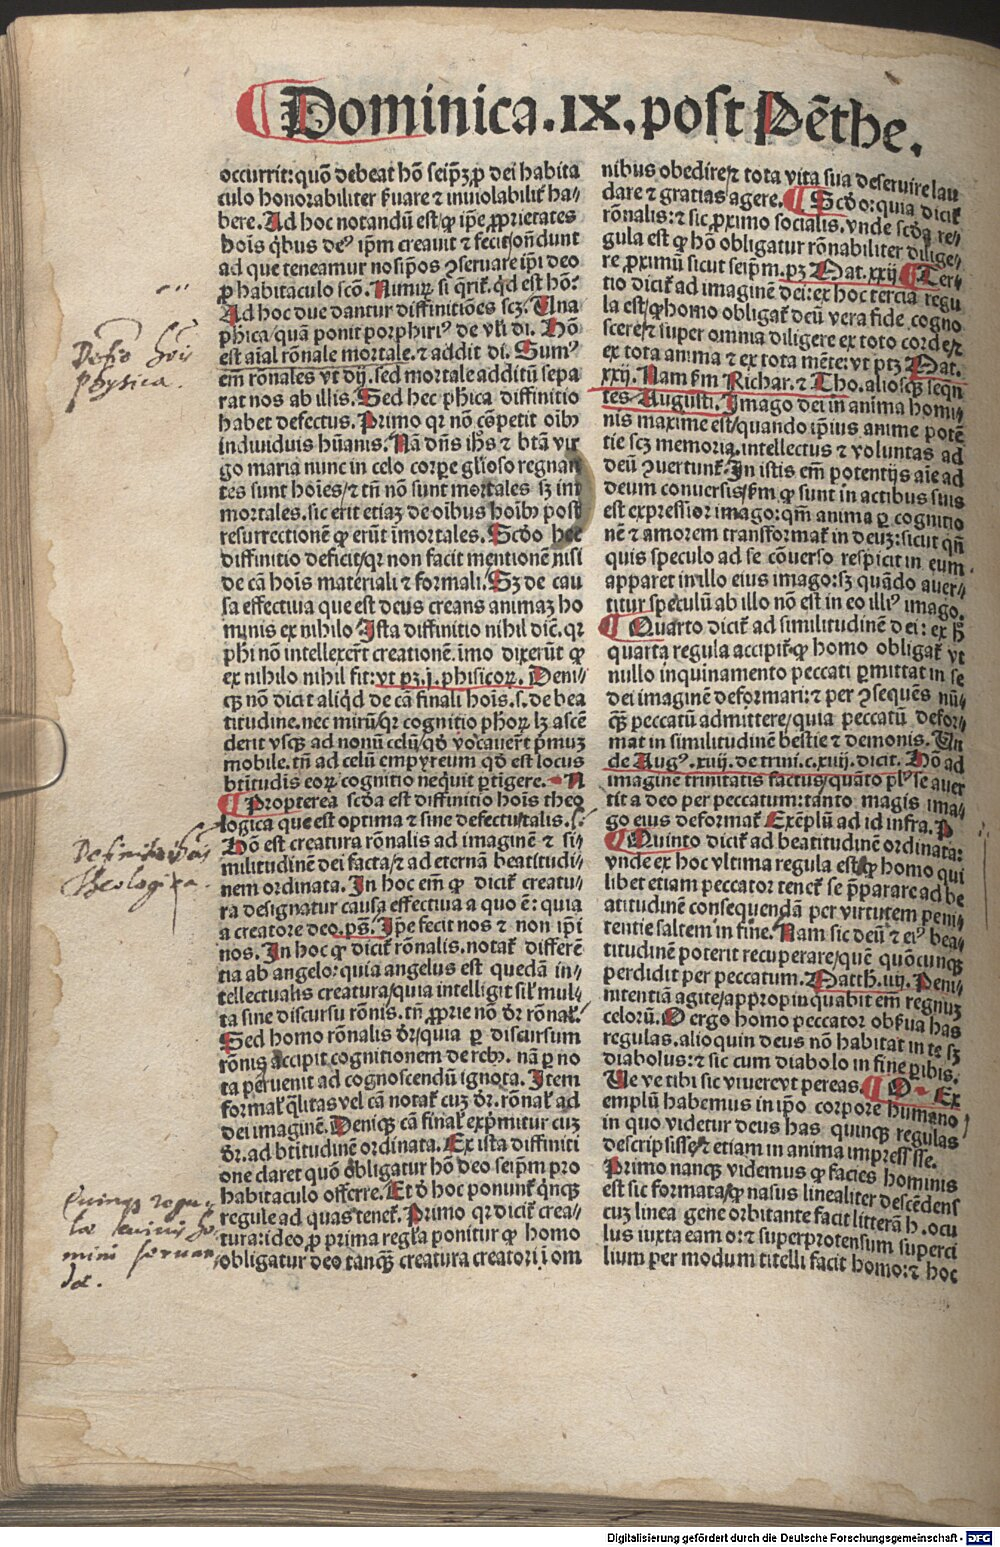 Dominica. IX. post Pēthe.
occurrit: quō debeat hō seip̄ꝫ ꝓ dei habita
culo honorabiliter ẜuare ⁊ inuiolabilit̉ ha-
bere. Ad hoc notandū est/ ꝙ ip̄e ꝓprietates
hoīs q̇bus deꝰ ip̄m creauit ⁊ fecit/ on̄dunt
ad que teneamur nosip̄os ꝯseruare ip̄i deo
ꝓ habitaculo scō. Nimiꝝ si q̄rit̉. qd est hō:
Ad hoc due dantur diffinitiōes scꝫ. Una
phica/ quā ponit porphiriꝰ de vl̓i di. Hō
est aīal rōnale mortale. ⁊ addit di. Sumꝰ
em̄ rōnales vt dij. sed mortale additū sepa
rat nos ab illis. Sed hec phica diffinitio
habet defectus. Primo qr nō cōpetit oīb̉
indiuiduis hūanis. Nā dn̄s ih̄s ⁊ btā vir
go maria nunc in celo corꝑe gl̓ioso regnan
tes sunt hoīes/ ⁊ tn̄ nō sunt mortales sꝫ im
mortales. sic erit etiaꝫ de oībus hoīb̉ post
resurrectionē ꝙ erūt īmortales. Scd̓o hec
diffinitio deficit/ qr non facit mentionē nisi
de cā hoīs materiali ⁊ formali. Sꝫ de cau
sa effectiua que est deus creans animaꝫ ho
minis ex nihilo Ista diffinitio nihil dīc. qr
phi nō intellexer̄t creationē. imo dixerūt ꝙ
ex nihilo nihil fit: vt pꝫ. j. phisicoꝝ. Deni-
cꝫ nō dicit aliq̇d de cā finali hoīs. s. de bea
titudine. nec mirū/ qr cognitio phoꝝ lꝫ ascē
derit vsqꝫ ad nonū celū/ qd̓ vocauer̄t pͥmuꝫ
mobile. tn̄ ad celū empyreum qd̓ est locus
btitudīs eoꝝ cognitio nequit ꝑtigere. N
Propterea scd̓a est diffinitio hoīs theo
logica que est optima ⁊ sine defectu/ talis.
Hō est creatura rōnalis ad imaginē ⁊ si-
militudinē dei facta/ ⁊ ad eternā beatitudi-
nem ordinata. In hoc em̄ ꝙ dicit̉ creatu-
ra designatur causa effectiua a quo ē: quia
a creatore deo. ps̄. Ip̄e fecit nos ⁊ non ip̄i
nos. In hoc ꝙ dicit̉ rōnalis. notat̉ differē
tia ab angelo: quia angelus est quedā in-
tellectualis creatura/ quia intelligit sil̓ mul-
ta sine discursu rōnis. tn̄ ꝓprie nō dr̄ rōnal̓.
Sed homo rōnalis dr̄/ quia ꝑ discursum
rōnis accipit cognitionem de reb̉. nā ꝑ no
ta peruenit ad cognoscendū ignota. Item
formal̓ q̄litas vel cā notat̉ cuꝫ dr̄. rōnal̓ ad
dei imaginē. Deniqꝫ cā final̓ exp̄mitur cuꝫ
dr̄. ad btitudinē ordinata. Ex ista diffiniti
one claret quō obligatur hō deo seip̄m pro
habitaculo offerre. Et d̓ hoc ponunt̉ q̇nqꝫ
regule ad quas tenet̉. Primo qr dicit̉ crea-
tura: ideo ꝓ prima regl̓a ponitur ꝙ homo
obligatur deo tanqꝫ creatura creatori ī om
nibus obedire/ ⁊ tota vita sua deseruire lau
dare ⁊ gratias agere. Scd̓o: quia dicit̉
rōnalis: ⁊ sic ꝓximo socialis. vnde scd̓a re-
gula est ꝙ hō obligatur rōnabiliter dilige-
re ꝓximū sicut seip̄m. pꝫ Mat. xxij. Ter-
tio dicit̉ ad imaginē dei: ex hoc tercia regu
la est/ ꝙ homo obligat̉ deū vera fide cogno
scere/ ⁊ super omnia diligere ex toto corde/ ⁊
ex tota anima ⁊ ex tota mēte: vt ptꝫ Mat.
xxij. Nam ẜm Richar. ⁊ Tho. aliosqꝫ seqn̄
tes Augusti. Imago dei in anima homi-
nis maxime est/ quando ip̄ius anime potē
tie scꝫ memoria. intellectus ⁊ voluntas ad
deū ꝯuertunt̉. In istis em̄ potentijs aīe ad
deum conuersis/ ẜm ꝙ sunt in actibus suis
est expressior imago: qm̄ anima ꝑ cognitio
nē ⁊ amorem transformat̉ in deuꝫ: sicut qn̄
quis speculo ad se cōuerso respicit in eum
apparet in illo eius imago: sꝫ quādo auer-
titur speculū ab illo nō est in eo illiꝰ imago.
Quarto dicit̉ ad similitudinē dei: ex h̄
quarta regula accipit̉. ꝙ homo obligat̉ vt
nullo inquinamento peccati ꝑmittat in se
dei imaginē deformari: ⁊ per ꝯsequēs nū-
qꝫ peccatū admittere/ quia peccatū defor-
mat in similitudinē bestie ⁊ demonis. Un̄
de Augꝰ. xiiij. de trini. c. xviij. dicit. Hō ad
imaginē trinitatis factus/ quāto plꝰ se auer
tit a deo per peccatum: tanto magis ima-
go eius deformat̉ Exēplū ad id infra. P
Quinto dicit̉ ad beatitudinē ordinata:
vnde ex hoc vltima regula est/ ꝙ homo qui
libet etiam peccator tenet̉ se p̄parare ad be
atitudinē consequendā per virtutem peni-
tentie saltem in fine. Nam sic deū ⁊ eiꝰ bea-
titudinē poterit recuperare/ quē quōcunqꝫ
perdidit per peccatum. Matth. iiij. Peni-
tentiā agite/ appropinquabit em̄ regnuꝫ
celorū. O ergo homo peccator obẜua has
regulas. alioquin deus nō habitat in te sꝫ
diabolus: ⁊ sic cum diabolo in fine ꝑibis.
Ue ve tibi sic viuere vt pereas. O Ex
emplū habemus in ip̄o corpore humano
in quo videtur deus has quinqꝫ regulas
descripsisse/ ⁊ etiam in anima impressisse.
Primo nanqꝫ videmus ꝙ facies hominis
est sic formata/ ꝙ nasus linealiter descēdens
cuꝫ linea gene orbitante facit litterā h. ocu
lus iuxta eam o: ⁊ superprotensum superci
lium per modum titelli facit homo: ⁊ hoc
Defīo hōis
physica.
Definitio hōis
Theologica.
Quinqꝫ regu-
lae
mini seruan
dae.
Digitalisierung gefördert durch die Deutsche Forschungsgemeinschaft - DFG